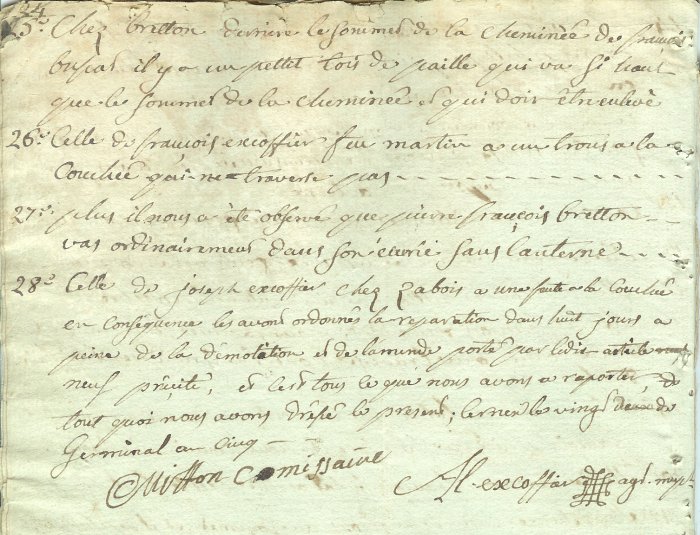 25.° Chez bretton derriere le sommet de la cheminée de françois
buscat il y a un pettit tois de paille qui va si haut
que le sommet de la cheminée et qui doit être enlevé
26.° Celle de françois excoffier feu martin a un trous a la
Couchée qui ne traverse pas
27.° plus il nous a été observé que pierre françois bretton
vas ordinairement dans son écurie sans lanterne
28.° Celle de joseph excoffier chez a une fente a la Couchée
en conséquence les avons ordonnés la reparation dans huit jours a
peine de la démolation et de lamande portée par ledit article
neuf précité, et cest tous ce que nous avons a raporter, de
tout quoi nous avons dréssé le present; cernex le vingt deux de
Germinal an cinq
Mitton Comissaire
Al. excoffier agt. mupl